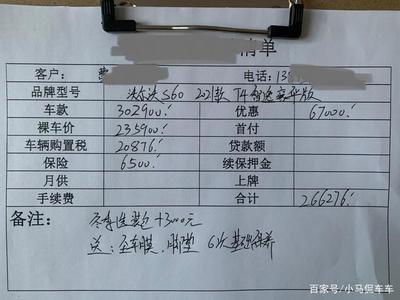 清单
客户: 电话: 13
品牌型号 沃尔沃S60 2021款 T4智逸豪华版
车款 302900 优惠 67000
裸车价 235900 首付
车辆购置税 20876 贷款额
保险 6500 续保押金
月供 上牌
手续费 合计 266276
备注: 冬季选装包 +3000元
送: 全车膜, 脚垫 6次基础保养
百家号/小马侃车车